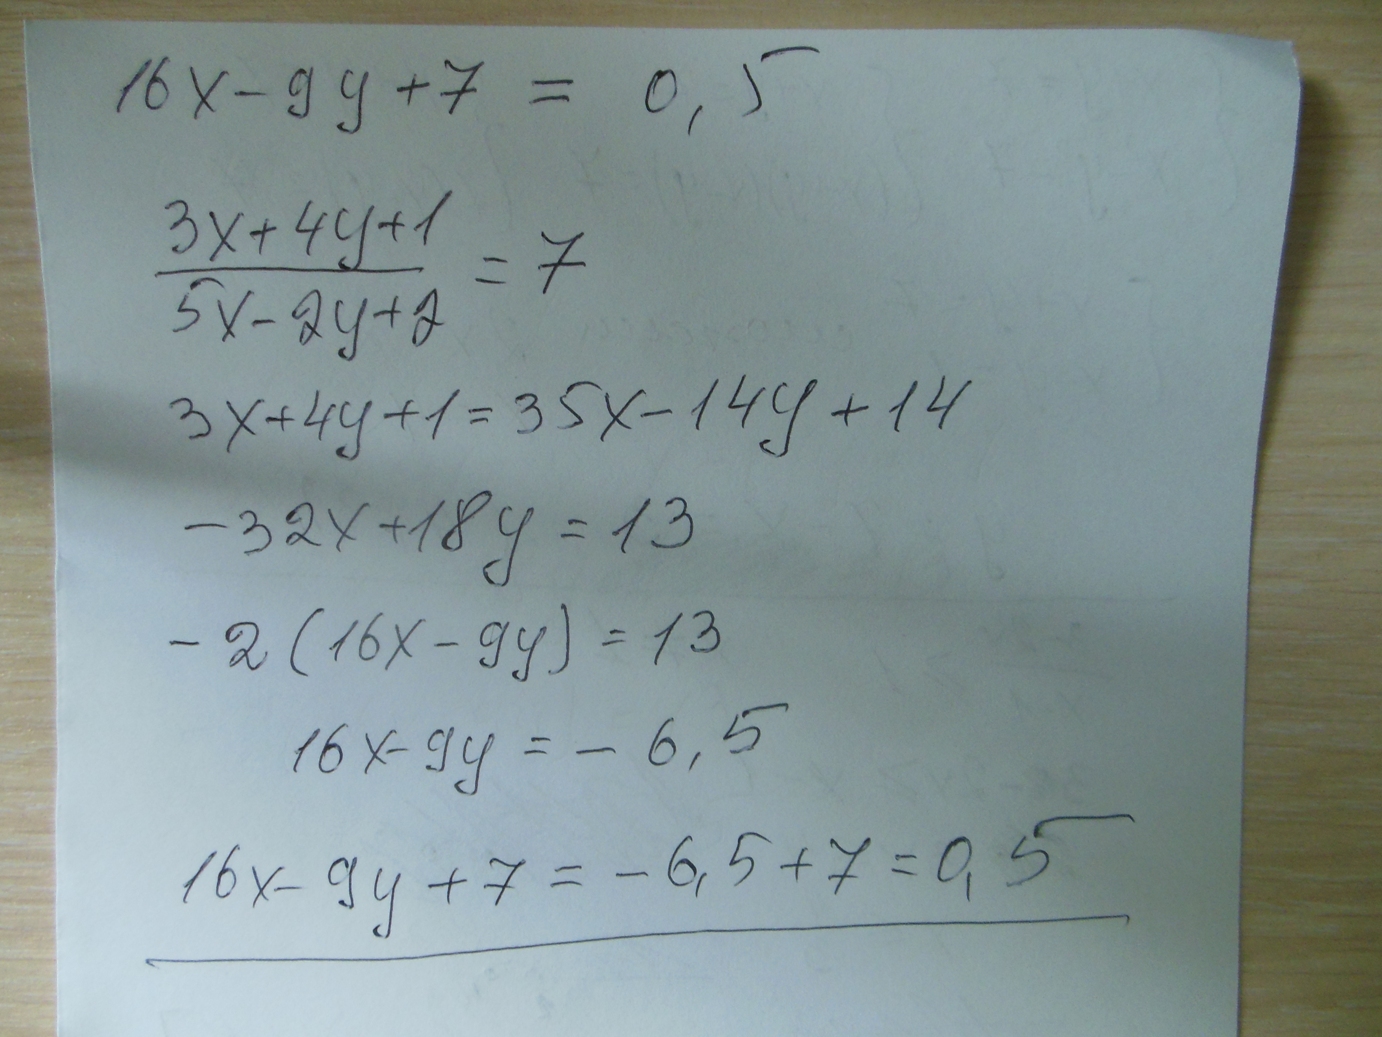 16x - 9y + 7 = 0,5
3x + 4y + 1
5x - 2y + 2
= 7
3x + 4y + 1 = 35x - 14y + 14
- 32x + 18y = 13
- 2 (16x - 9y) = 13
16x - 9y = - 6,5
16x - 9y + 7 = - 6,5 + 7 = 0,5